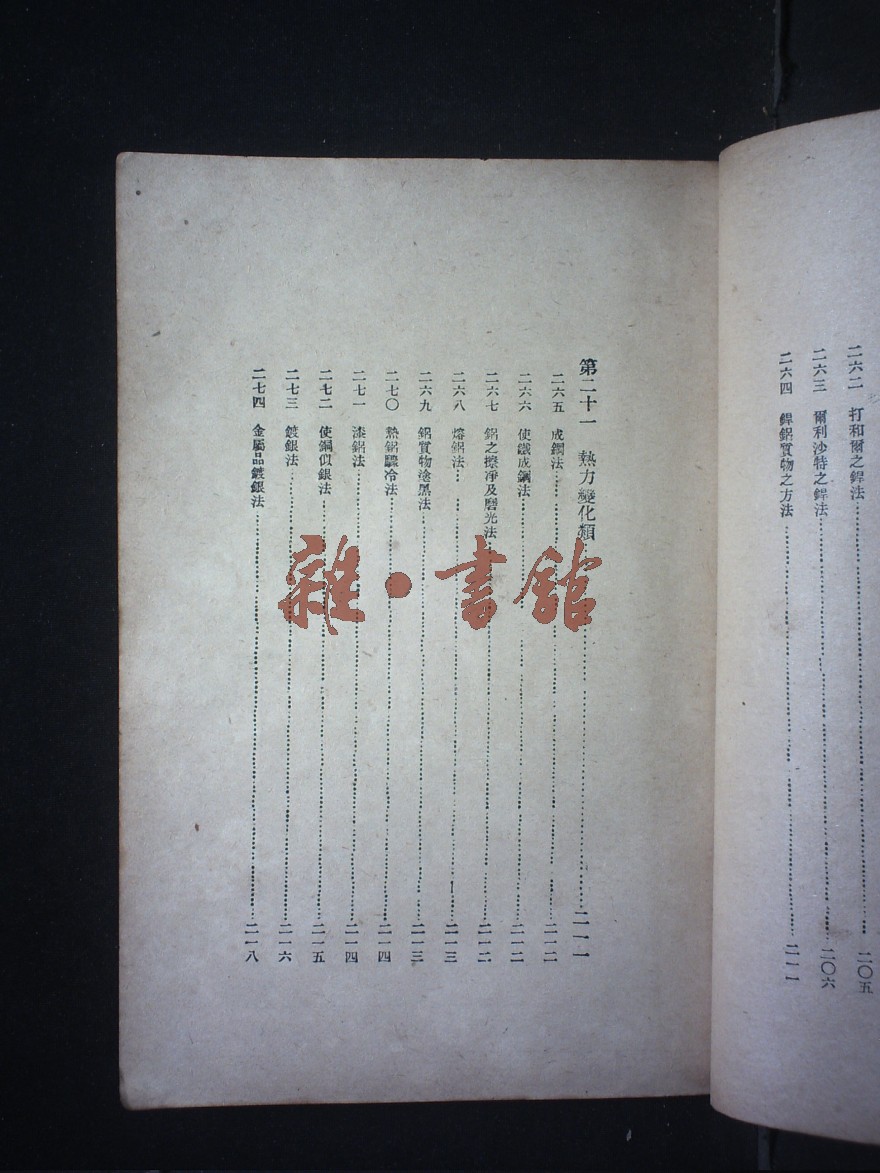 二六二 打和爾之銲法 二〇五
二六三 爾利沙特之銲法 二〇六
二六四 銲鋁質物之方法 二一一
第二十一 熱力變化類 二一一
二六五 成鋼法 二一二
二六六 使鐵成鋼法 二一二
二六七 鋁之擦淨及磨光法 二一二
二六八 熔鋁法 二一三
二六九 鋁質物塗黑法 二一三
二七〇 熱鋁驟冷法 二一四
二七一 漆鋁法 二一四
二七二 使銅似銀法 二一五
二七三 鍍銀法 二一六
二七四 金屬品鍍銀法 二一八
雜·書館